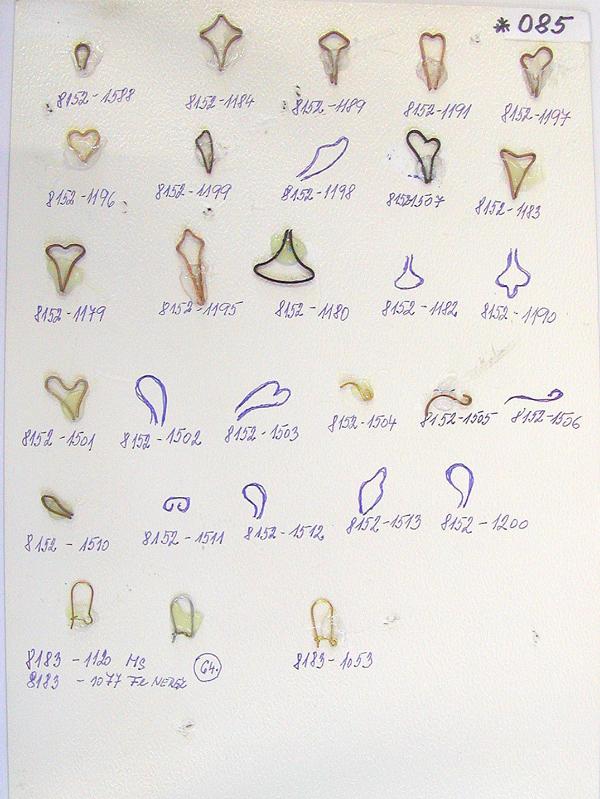 *085
8152-1588 8152-1184 8152-1189 8152-1191 8152-1197
8152-1196 8152-1199 8152-1198 8152-1507 8152-1183
8152-1179 8152-1195 8152-1180 8152-1182 8152-1190
8152-1501 8152-1502 8152-1503 8152-1504 8152-1505 8152-1506
8152-1510 8152-1511 8152-1512 8152-1513 8152-1200
8183-1120 MS 8183-1053
8183-1077 Fe NEREZ 64.